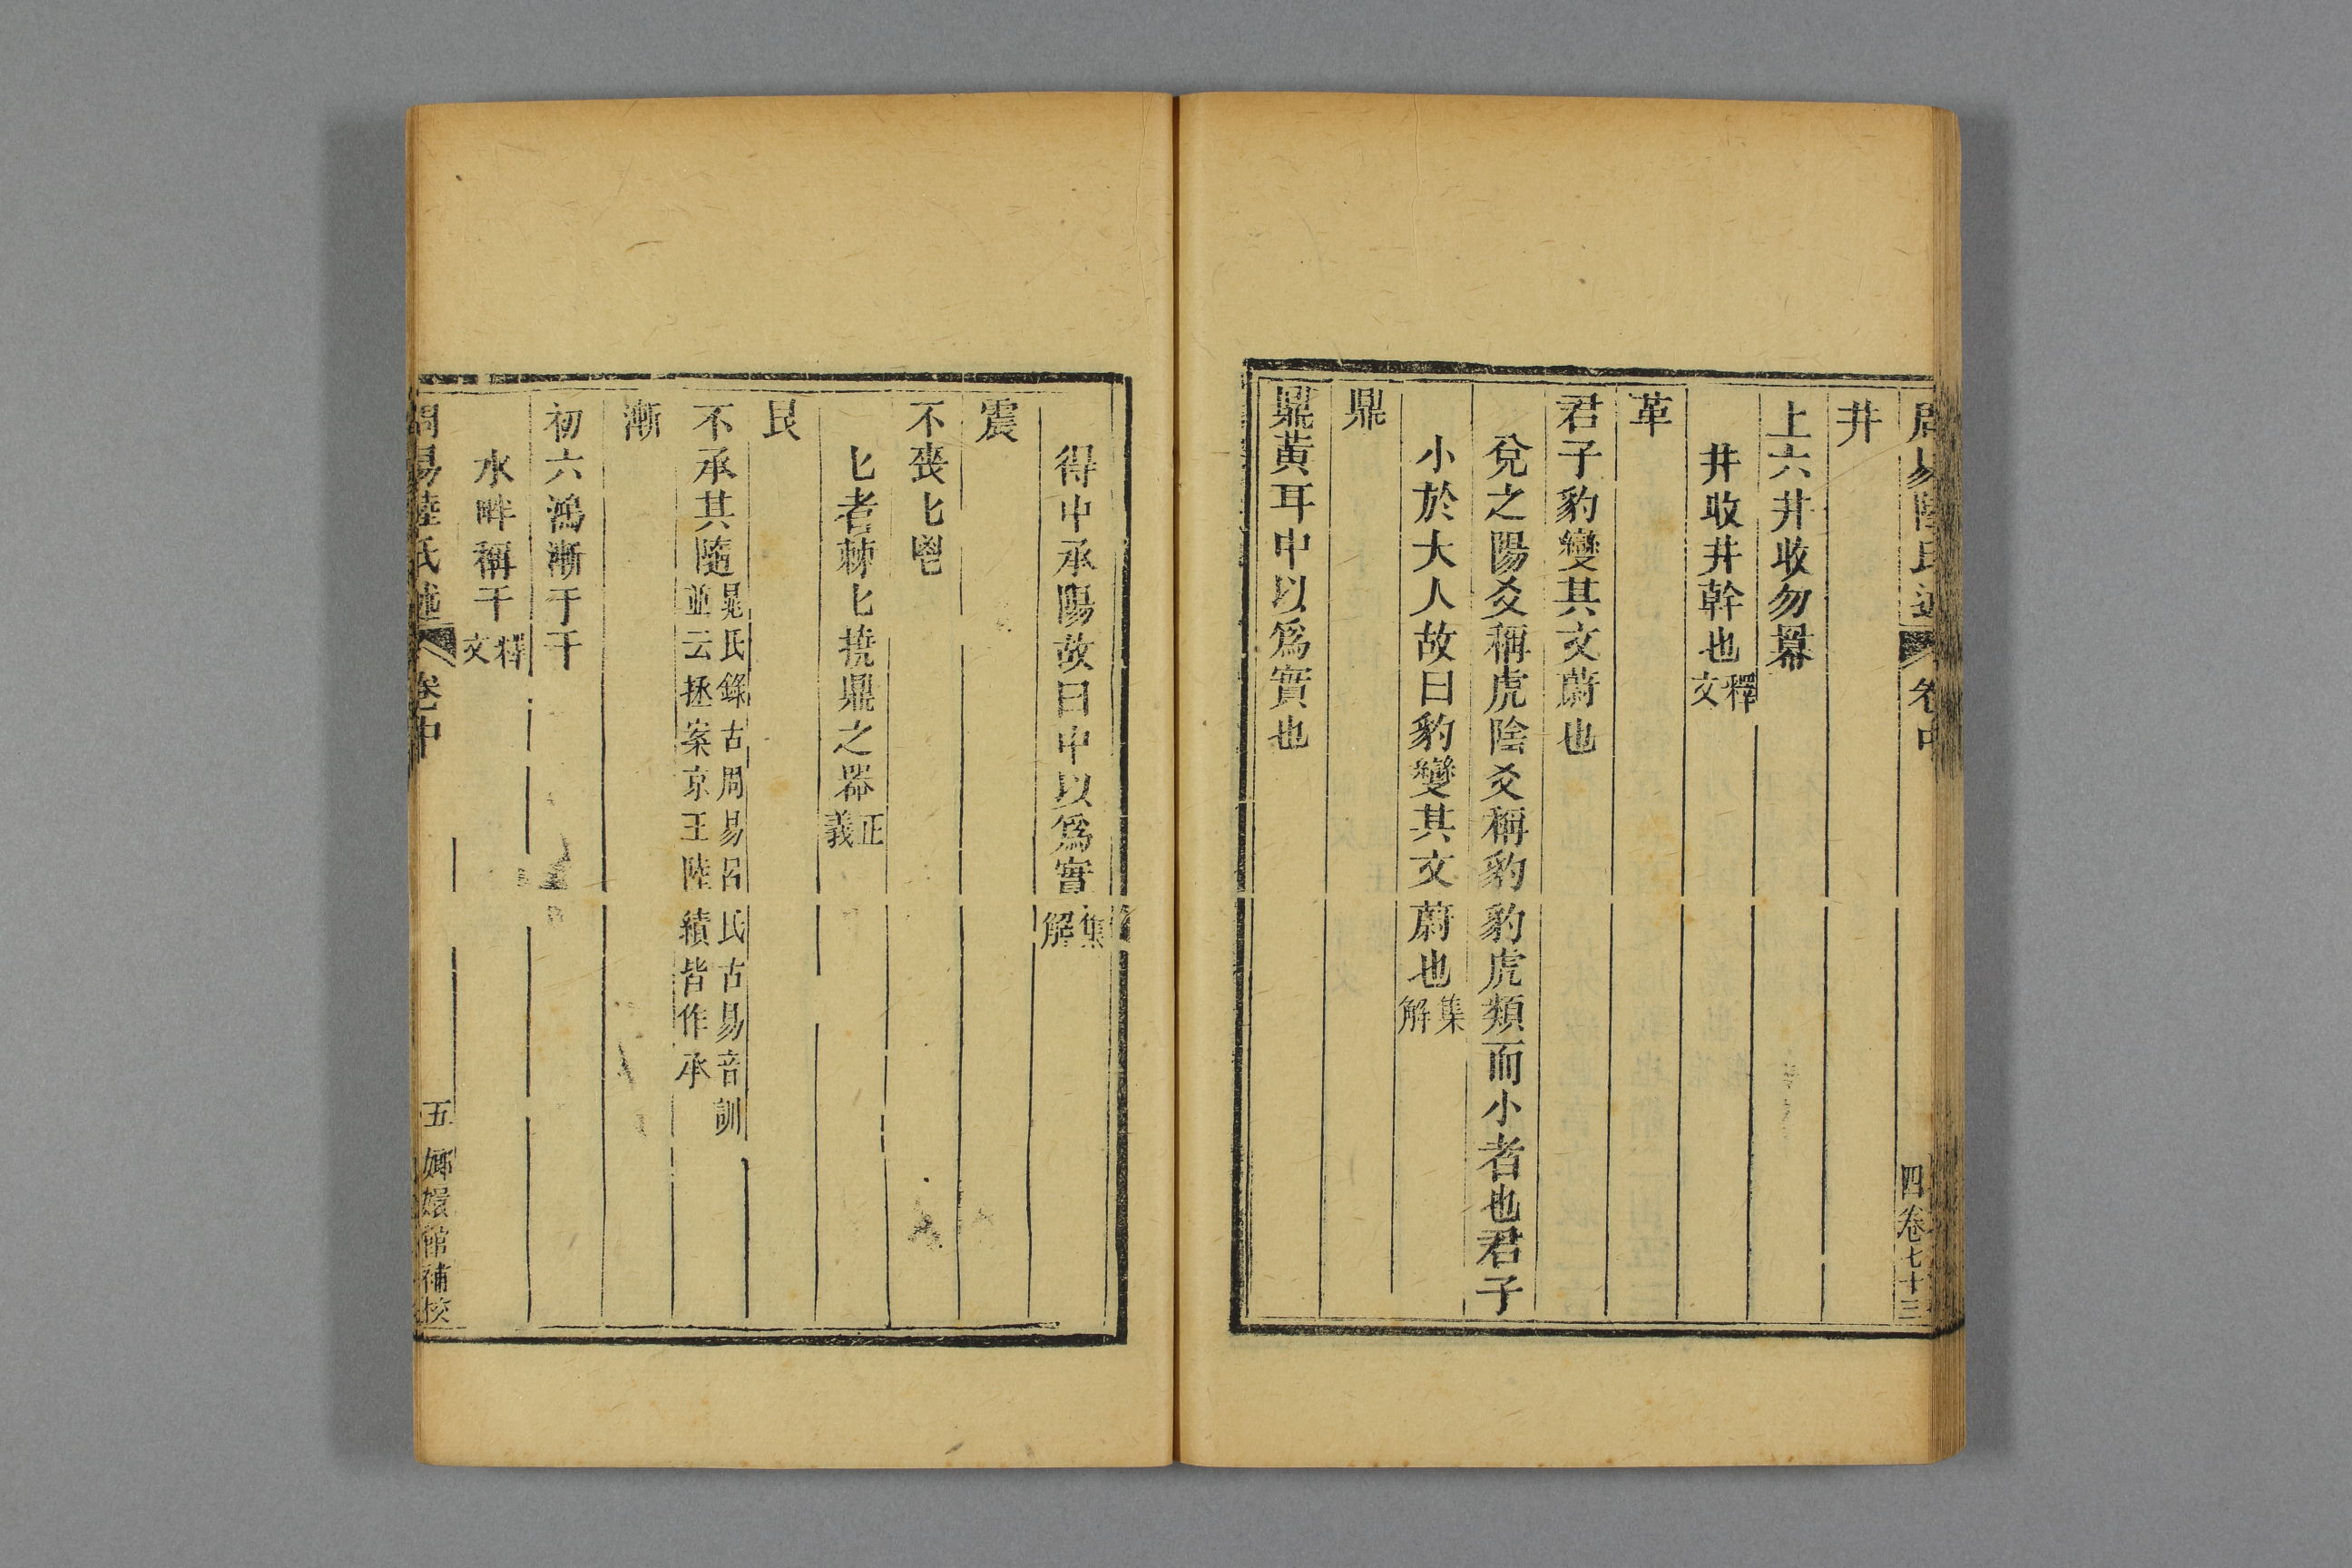 周易陸氏述 卷中 四 卷七十三
井
上六井收勿羃
井收井幹也釋文
革
君子豹變其文蔚也
兌之陽爻稱虎陰爻稱豹豹虎類而小者也君子
小於大人故曰豹變其文蔚也集解
鼎
鼎黃耳中以爲實也
得中承陽故曰中以爲實集解
震
不喪匕鬯
匕者棘匕撓鼎之器正義
艮
不承其隨晁氏錄古周易呂氏古易音訓
並云拯案京王陸績皆作承
漸
初六鴻漸于干
水畔稱干釋文
周易陸氏述 卷中 五 嫏嬛館補校